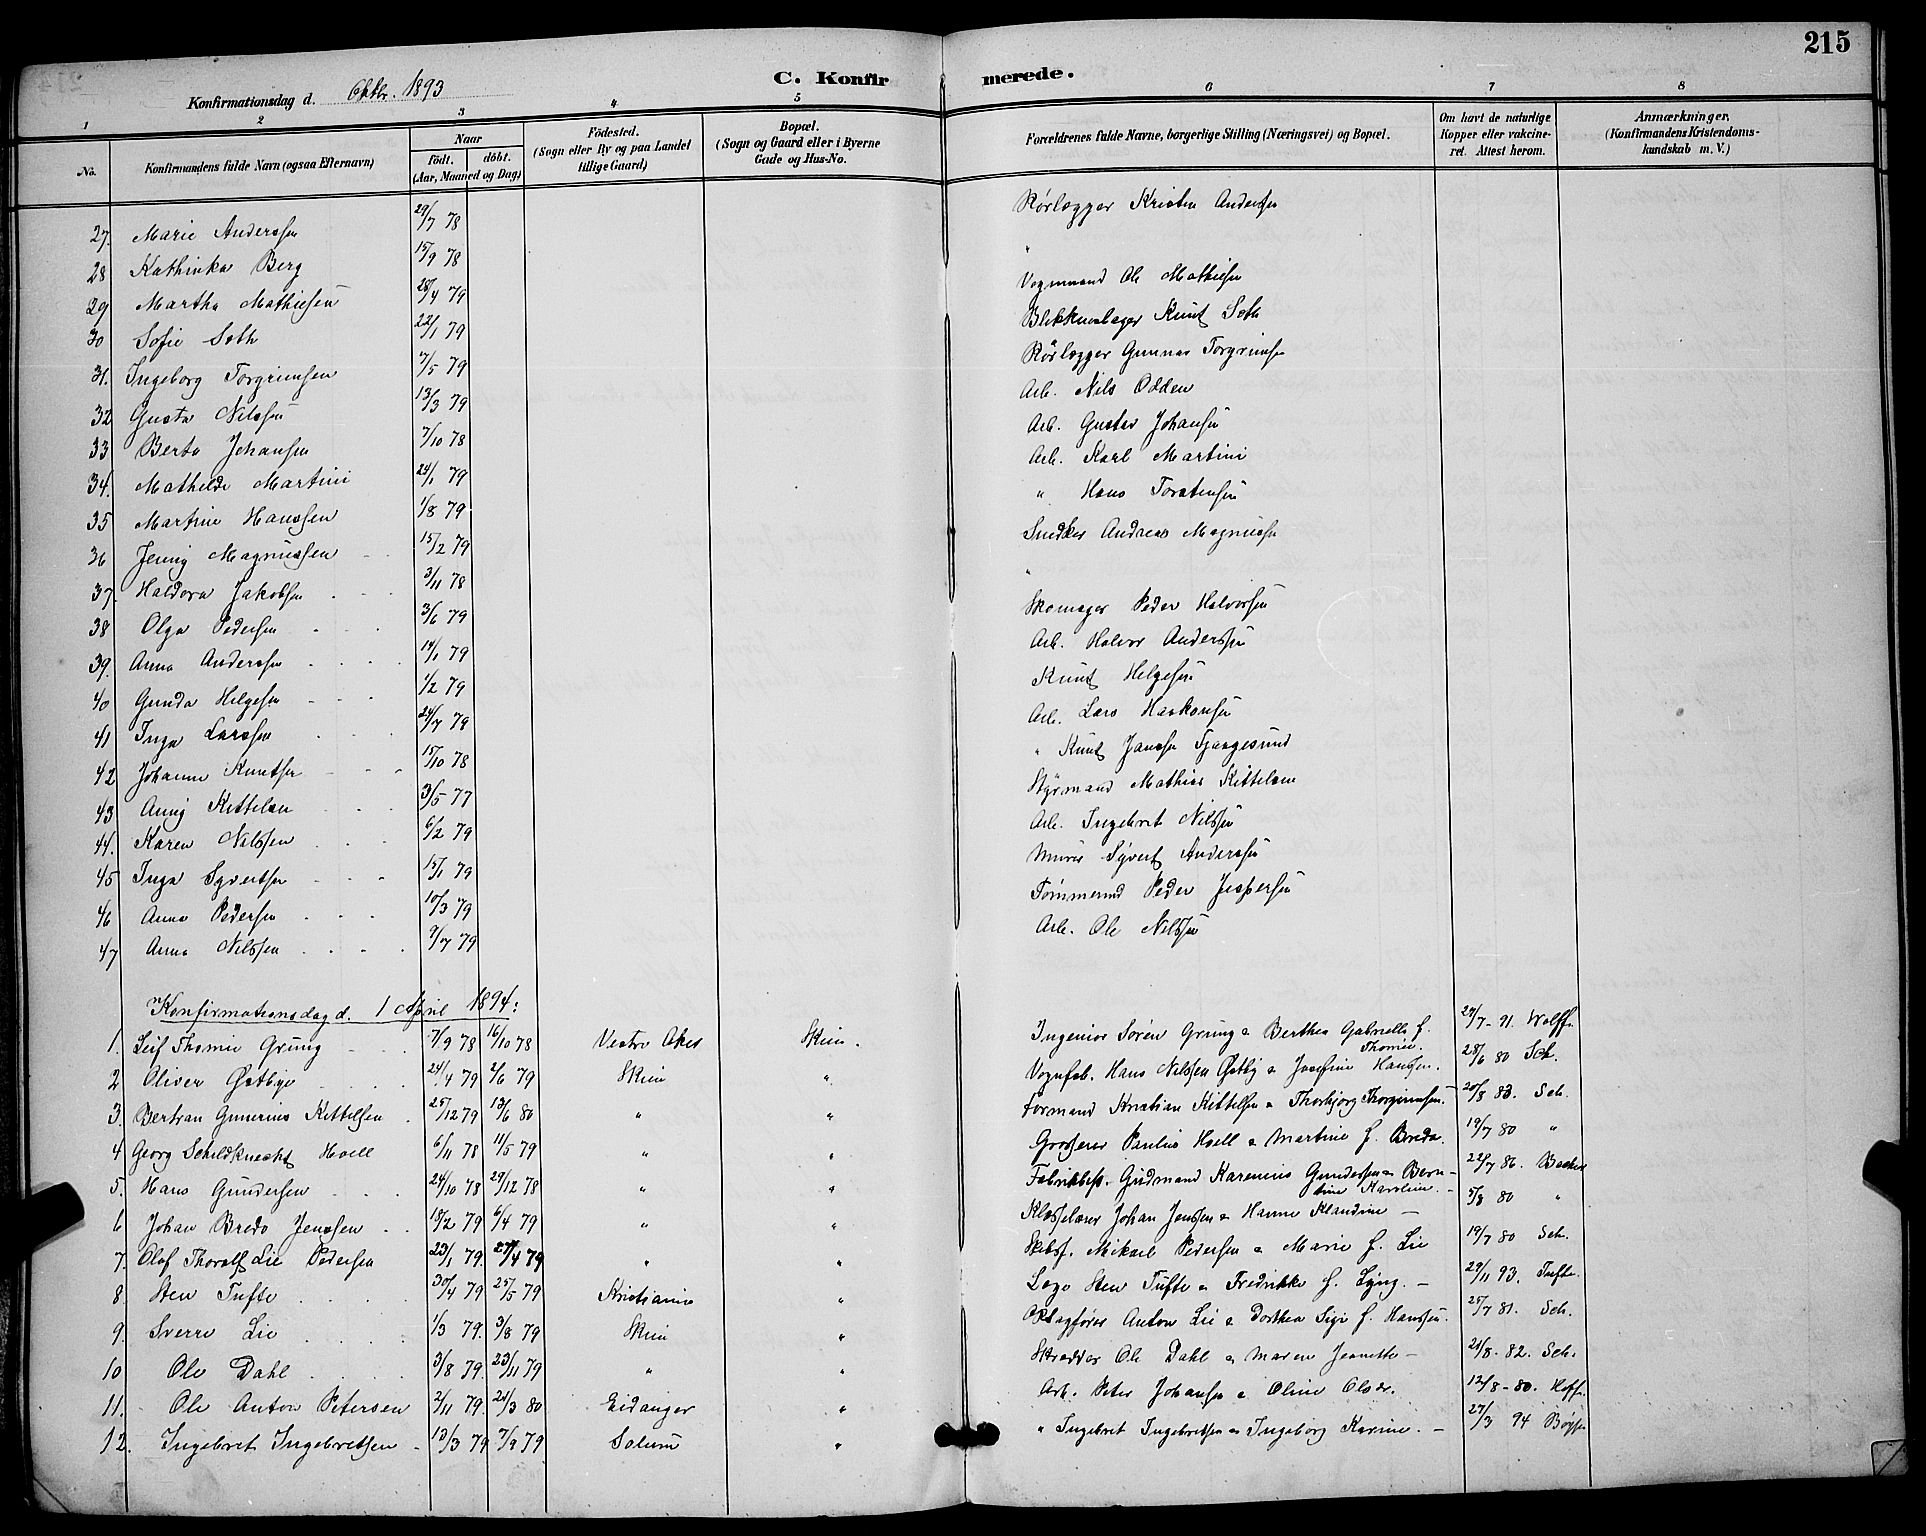 215
C. Konfirmerede.
Konfirmationsdag d. Oktbr. 1893
1 2 3 4 5 6 7 8
No. Konfirmandens fulde Navn (ogsaa Efternavn) Naar født. døbt. (Aar, Maaned og Dag) Fødested. (Sogn eller By og paa Landet tillige Gaard) Bopæl. (Sogn og Gaard eller i Byerne Gade og Hus-No. Forældrenes fulde Navne, borgerlige Stilling (Næringsvei) og Bopæl. Om havt de naturlige Kopper eller vakcineret. Attest herom. Anmærkninger. (Konfirmandens Kristendomskundskab m. V.)
27. Marie Anderssen 29/7 78 Rørlægger Kristen Anderssen
28 Kathinka Berg 15/9 78 "
29 Martha Mathiesen 28/4 79 Vognmand Ole Mathiesen
30 Sofie Seth 22/1 79 Blikkenslager Knut Seth
31. Ingeborg Torgrimsen 7/5 79 Rörlægger Gunnar Torgrimsen
32 Gusta Nilssen 13/3 79 Arb. Nils Odden
33 Berta Johansen 7/10 78 Arb. Gustav Johansen
34. Mathilde Martini 24/1 79 Arb. Karl Martini
35 Martine Hanssen 1/8 79 " Hans Torstensen
36 Jenny Magnussen 15/2 79 Snedker Andreas Magnussen
37. Haldora Jakobsen 3/11 78 "
38 Olga Pedersen 3/6 79 Skomager Peder Halvorsen
39. Anna Anderssen 14/1 79 Arb. Halvor Anderssen
40 Gunda Helgesen 1/2 79 Knut Helgesen
41 Inga Larssen 24/7 79 Arb. Lars Haakonsen
42 Johanne Knutsen 15/10 78 " Knut Janssen Fjaagesund
43 Anny Kittelsen 3/5 77 Styrmand Mathias Kittelsen
44. Karen Nilssen 6/2 79 Arb. Ingebret Nilssen
45 Inga Syvertsen 15/1 79 Murer Syvert Anderssen
46 Anna Pedersen 10/3 79 Tömmermd Peder Jespersen
47 Anna Nilssen 9/7 79 Arb. Ole Nilssen
Konfirmationsdag d. 1 April 1894:
1. Leif Thomie Grung 7/9 78 16/10 78 Vestre Aker Skien. Ingeniør Sören Grung & Berthea Gabrielle f. Thomie. 24/7 - 91. Wolff.
2 Oliver Østbye 24/4 79 2/6 79 Skien " Vognfab. Hans Nilssen Østby & Josefine Hanssen. 28/6 80 Sch.
3. Bertran Gunerius Kittelsen 25/12 79 13/6 80 " " Formand Kristian Kittelsen & Thorbjorg Thorgrimsen. 20/8 83. Sch.
4 Georg Schildknecht Hoell 6/11 78 11/5 79 " " Grosserer Paulus Hoell & Martine f. Bredo. 19/7 80 "
5. Hans Gundersen 24/10 78 29/12 78 " " Fabrikbest. Gudmand Karenius Gundersen & Berntine Karoline. 22/7 86.
6 Johan Bredo Jenssen 18/2 79 6/4 79 " " Klasselærer Johan Jenssen & Hanne Klandine 5/8 80 "
7. Olof Thoralf Lie Pedersen 23/1 79. 27/4 79 " " Skibsf. Mikael Pedersen & Marie f. Lie 19/7 80 Sch.
8. Sten Tufte 30/4 79 25/5 79 Kristiania " Læge Sten Tufte & Fredrikke f. Lyng. 29/11 93. Tufte.
9. Sverre Lie 1/3 79. 3/8 79 Skien " Anton Lie & Dorthea f. Hanssen. 25/7 81. Sch.
10 Ole Dahl 3/8 79. 23/11 79 " " Skrædder Ole Dahl & Maren Jeanette 21/8 - 82. Sch.
11. Ole Anton Petersen 2/11 79. 21/3 80 Eidanger " Arb. Peter Johansen & Oline Olsdr. 12/8 - 80. Hoff.
12. Ingebret Ingebretsen 13/3 79 7/9 79 Solum " " Ingebret Ingebretsen & Ingeborg Karine. 27/3 94